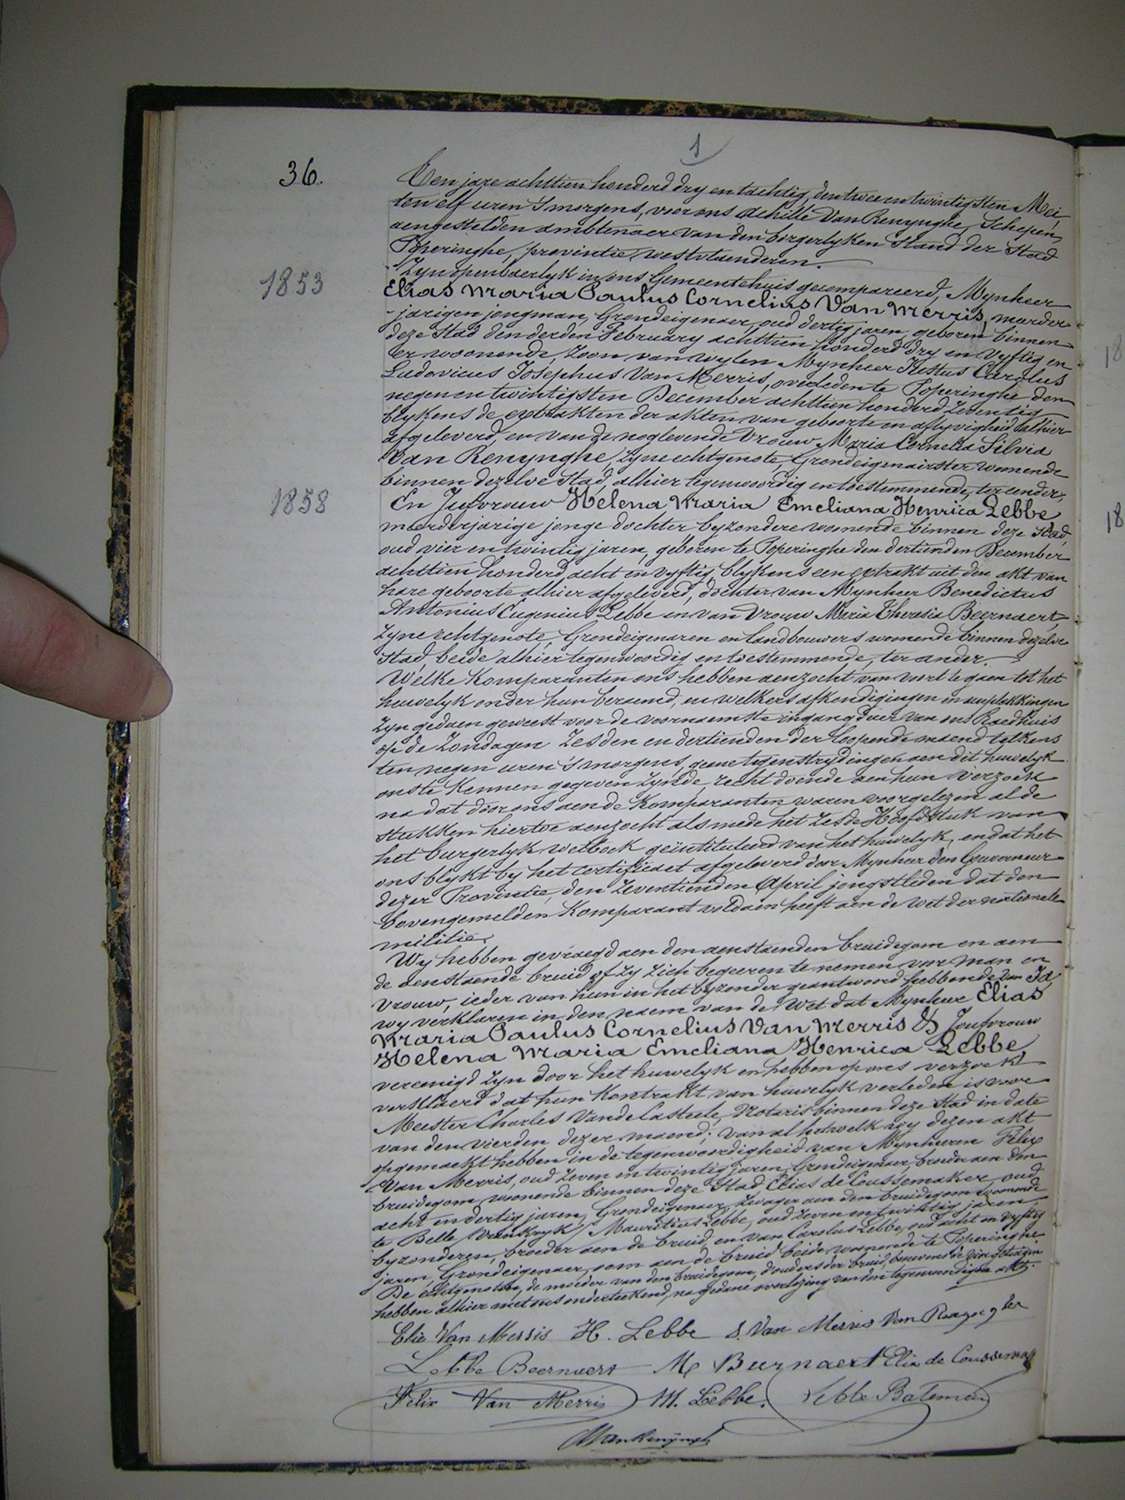 1
36.
Een jare achttien honderd dry en tachtig, den twee en twintigsten Mei,
ten elf uren 's morgens, voor ons Achille Van Renynghe, Schepen,
aengestelden ambtenaer van den borgerlyken Stand der Stad
Poperinghe, provintie Westvlaenderen.
Zyn openbaerlyk in ons Gemeentehuis gecompareerd, Mynheer
1853
Elias Maria Paulus Cornelius Van Merris, meerder-
jarigen jongman, Grondeigenaer, oud dertig jaren, geboren binnen
deze Stad den derden February achttien honderd dry en vyftig en
er woonende, Zoon van wylen Mynheer Justus Carolus
Ludovicus Josephus Van Merris, overleden te Poperinghe den
negen en twintigsten December achttien honderd zeventig
blykens de extrakten der akten van geboorte en aflyvigheid alhier
afgeleverd, en van de noglevende Vrouw Maria Cornelia Silvia
Van Renynghe, zyne echtgenote, Grondeigenairster woonende
binnen dezelve Stad, alhier tegenwoordig en toestemmende, ter eender,
1858
En Jufvrouw Helena Maria Emeliana Henrica Lebbe
meerderjarige jonge dochter byzondere woonende binnen deze Stad,
oud vier en twintig jaren, geboren te Poperinghe den dertienden December
achttien honderd acht en vyftig, blykens een extrakt uit den akt van
hare geboorte alhier afgeleverd, dochter van Mynheer Benedictus
Antonius Eugenius Lebbe en van Vrouw Maria Theresia Beernaert,
zyne echtgenote, Grondeigenaren en landbouwers woonende binnen dezelve
Stad, beide alhier tegenwoordig en toestemmende, ter ander.
Welke komparanten ons hebben aenzocht van voort te gaen tot het
huwelyk onder hun beraemd, en welkers afkondigingen en aenplakkingen
zyn gedaen geweest voor de voornaemste ingangdeur van ons Raedhuis
op de zondagen zesden en dertienden der loopende maend telkens
ten negen uren 's morgens, geene tegenstrydingen aen dit huwelyk
ons te kennen gegeven zynde, recht doende aen hun verzoek
na dat door ons aen de komparanten waren voorgelezen al de
stukken hiertoe aenzocht alsmede het zesde Hoofdstuk van
het burgerlyk wetboek geïntituleerd van het huwelyk, en dat het
ons blykt by het certifikaet afgeleverd door Mynheer den Gouverneur
dezer Provintie, den zeventienden April jongstleden dat den
bovengemelden komparant voldaen heeft aen de wet der nationale
militie.
Wy hebben gevraegd aen den aenstaenden bruidegom en aen
de aenstaende bruid of zy zich begeeren te nemen voor man en
vrouw, ieder van hun in het byzonder geantwoord hebbende van Ja,
wy verklaren in den naem van de Wet dat Mynheer Elias
Maria Paulus Cornelius Van Merris & Jonfvrouw
Helena Maria Emeliana Henrica Lebbe
vereenigd zyn door het huwelyk en hebben op ons verzoek
verklaerd dat hun kontrakt van huwelyk verleden is voor
Meester Charles Vande Casteele, Notaris binnen deze Stad in date
van den vierden dezer maend; van al hetwelk wy dezen akt
opgemaekt hebben in de tegenwoordigheid van Mynheeren Felix
Van Merris, oud zeven en twintig jaren, Grondeigenaer, broeder aen den
bruidegom woonende binnen deze Stad, Elias de Coussemaker, oud
acht en dertig jaren, Grondeigenaer, Zwager aen den bruidegom woonende
te Belle (Vrankryk), Mauritius Lebbe, oud zeven en twintig jaren,
byzonderen, broeder aen de bruid, en van Carolus Lebbe, oud acht en vyftig
jaren, Grondeigenaer, oom aen de bruid beide woonende te Poperinghe.
De echtgenoten, de moeder van den bruidegom, d'ouders der bruid, benevens de vier getuigen
hebben alhier met ons onderteekend, na gedane overlezing van den tegenwoordigen akt.
Elie Van Merris H. Lebbe S. Van Merris Van Renynghe
Lebbe Beernaert M Beernaert Elie de Coussemaker
Felix Van Merris M. Lebbe. Lebbe Bateman
AVanRenynghe
18
18